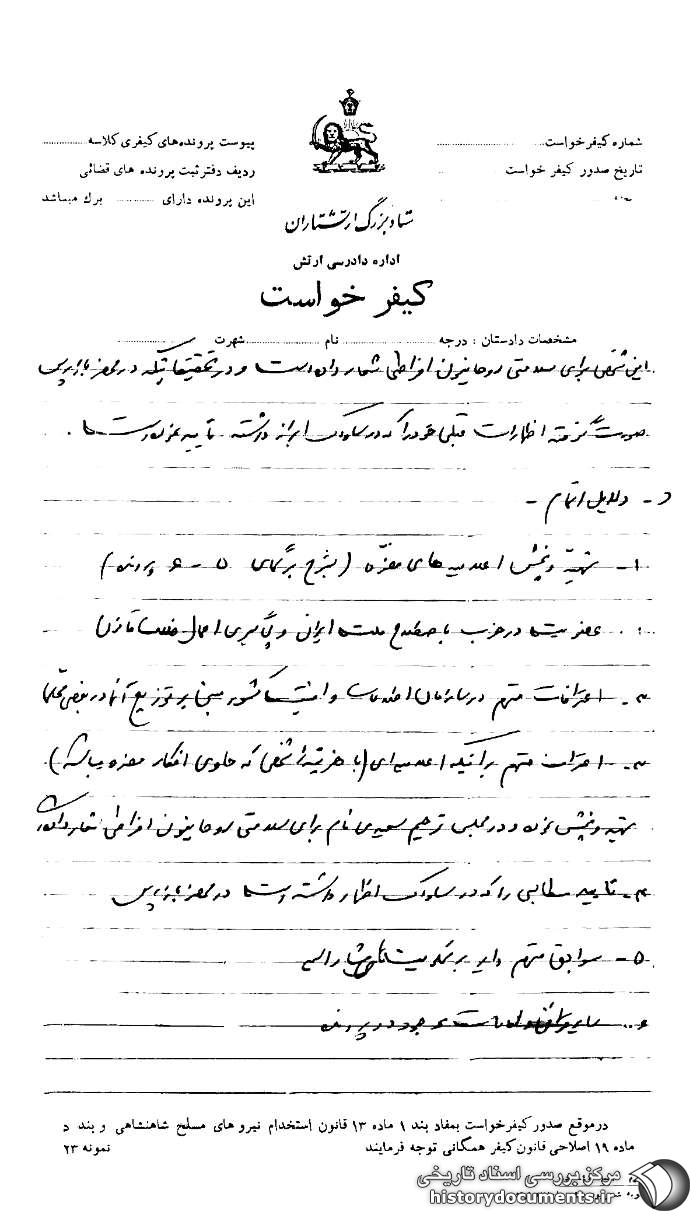 شماره کیفرخواست
تاریخ صدور کیفر خواست
پیوست پرونده‌های کیفری کلاسه
ردیف دفتر ثبت پرونده های قضائی
این پرونده دارای برك میباشد
ستاد بزرگ ارتشتاران
اداره دادرسی ارتش
کیفر خواست
مشخصات دادستان : درجه نام شهرت
این شخص برای سلامتی روحانیون افراطی شعار داده است و در تحقیقاتیکه در محضر بازپرسی
صورت گرفته اظهارات قبلی خود را که در ساواک ابراز داشته تایید نموده است .
د - دلایل اتهام -
۱- تهیه و پخش اعلامیه های مضره (بشرح برگهای ۵ - ۶ پرونده)
عضویت در حزب باصطلاح ملت ایران و پیگیری اعمال خلاف قانون
۳- اعترافات متهم در سازمان اطلاعات و امنیت کشور مبنی بر توزیع آنها در بعضی محلها
۳- اعتراف متهم براینکه اعلامیه‌ای (با هزینه شخصی که حاوی افکار مضره میباشد)
تهیه و پخش نموده و در مجلس ترحیم سعیدی نام برای سلامتی روحانیون افراطی شعار داده
۴- تایید مطالبی را که در ساواک اظهار داشته است در محضر بازپرس
۵- سوابق متهم دایر بر محکومیتهای مشارالیه
۶- سایر موجود در پرونده
در موقع صدور کیفرخواست بمفاد بند ۱ ماده ۱۳ قانون استخدام نیروهای مسلح شاهنشاهی و بند د
ماده ۱۹ اصلاحی قانون کیفر همگانی توجه فرمایند
نمونه ۲۳
مرکز بررسی اسناد تاریخی
historydocuments.ir